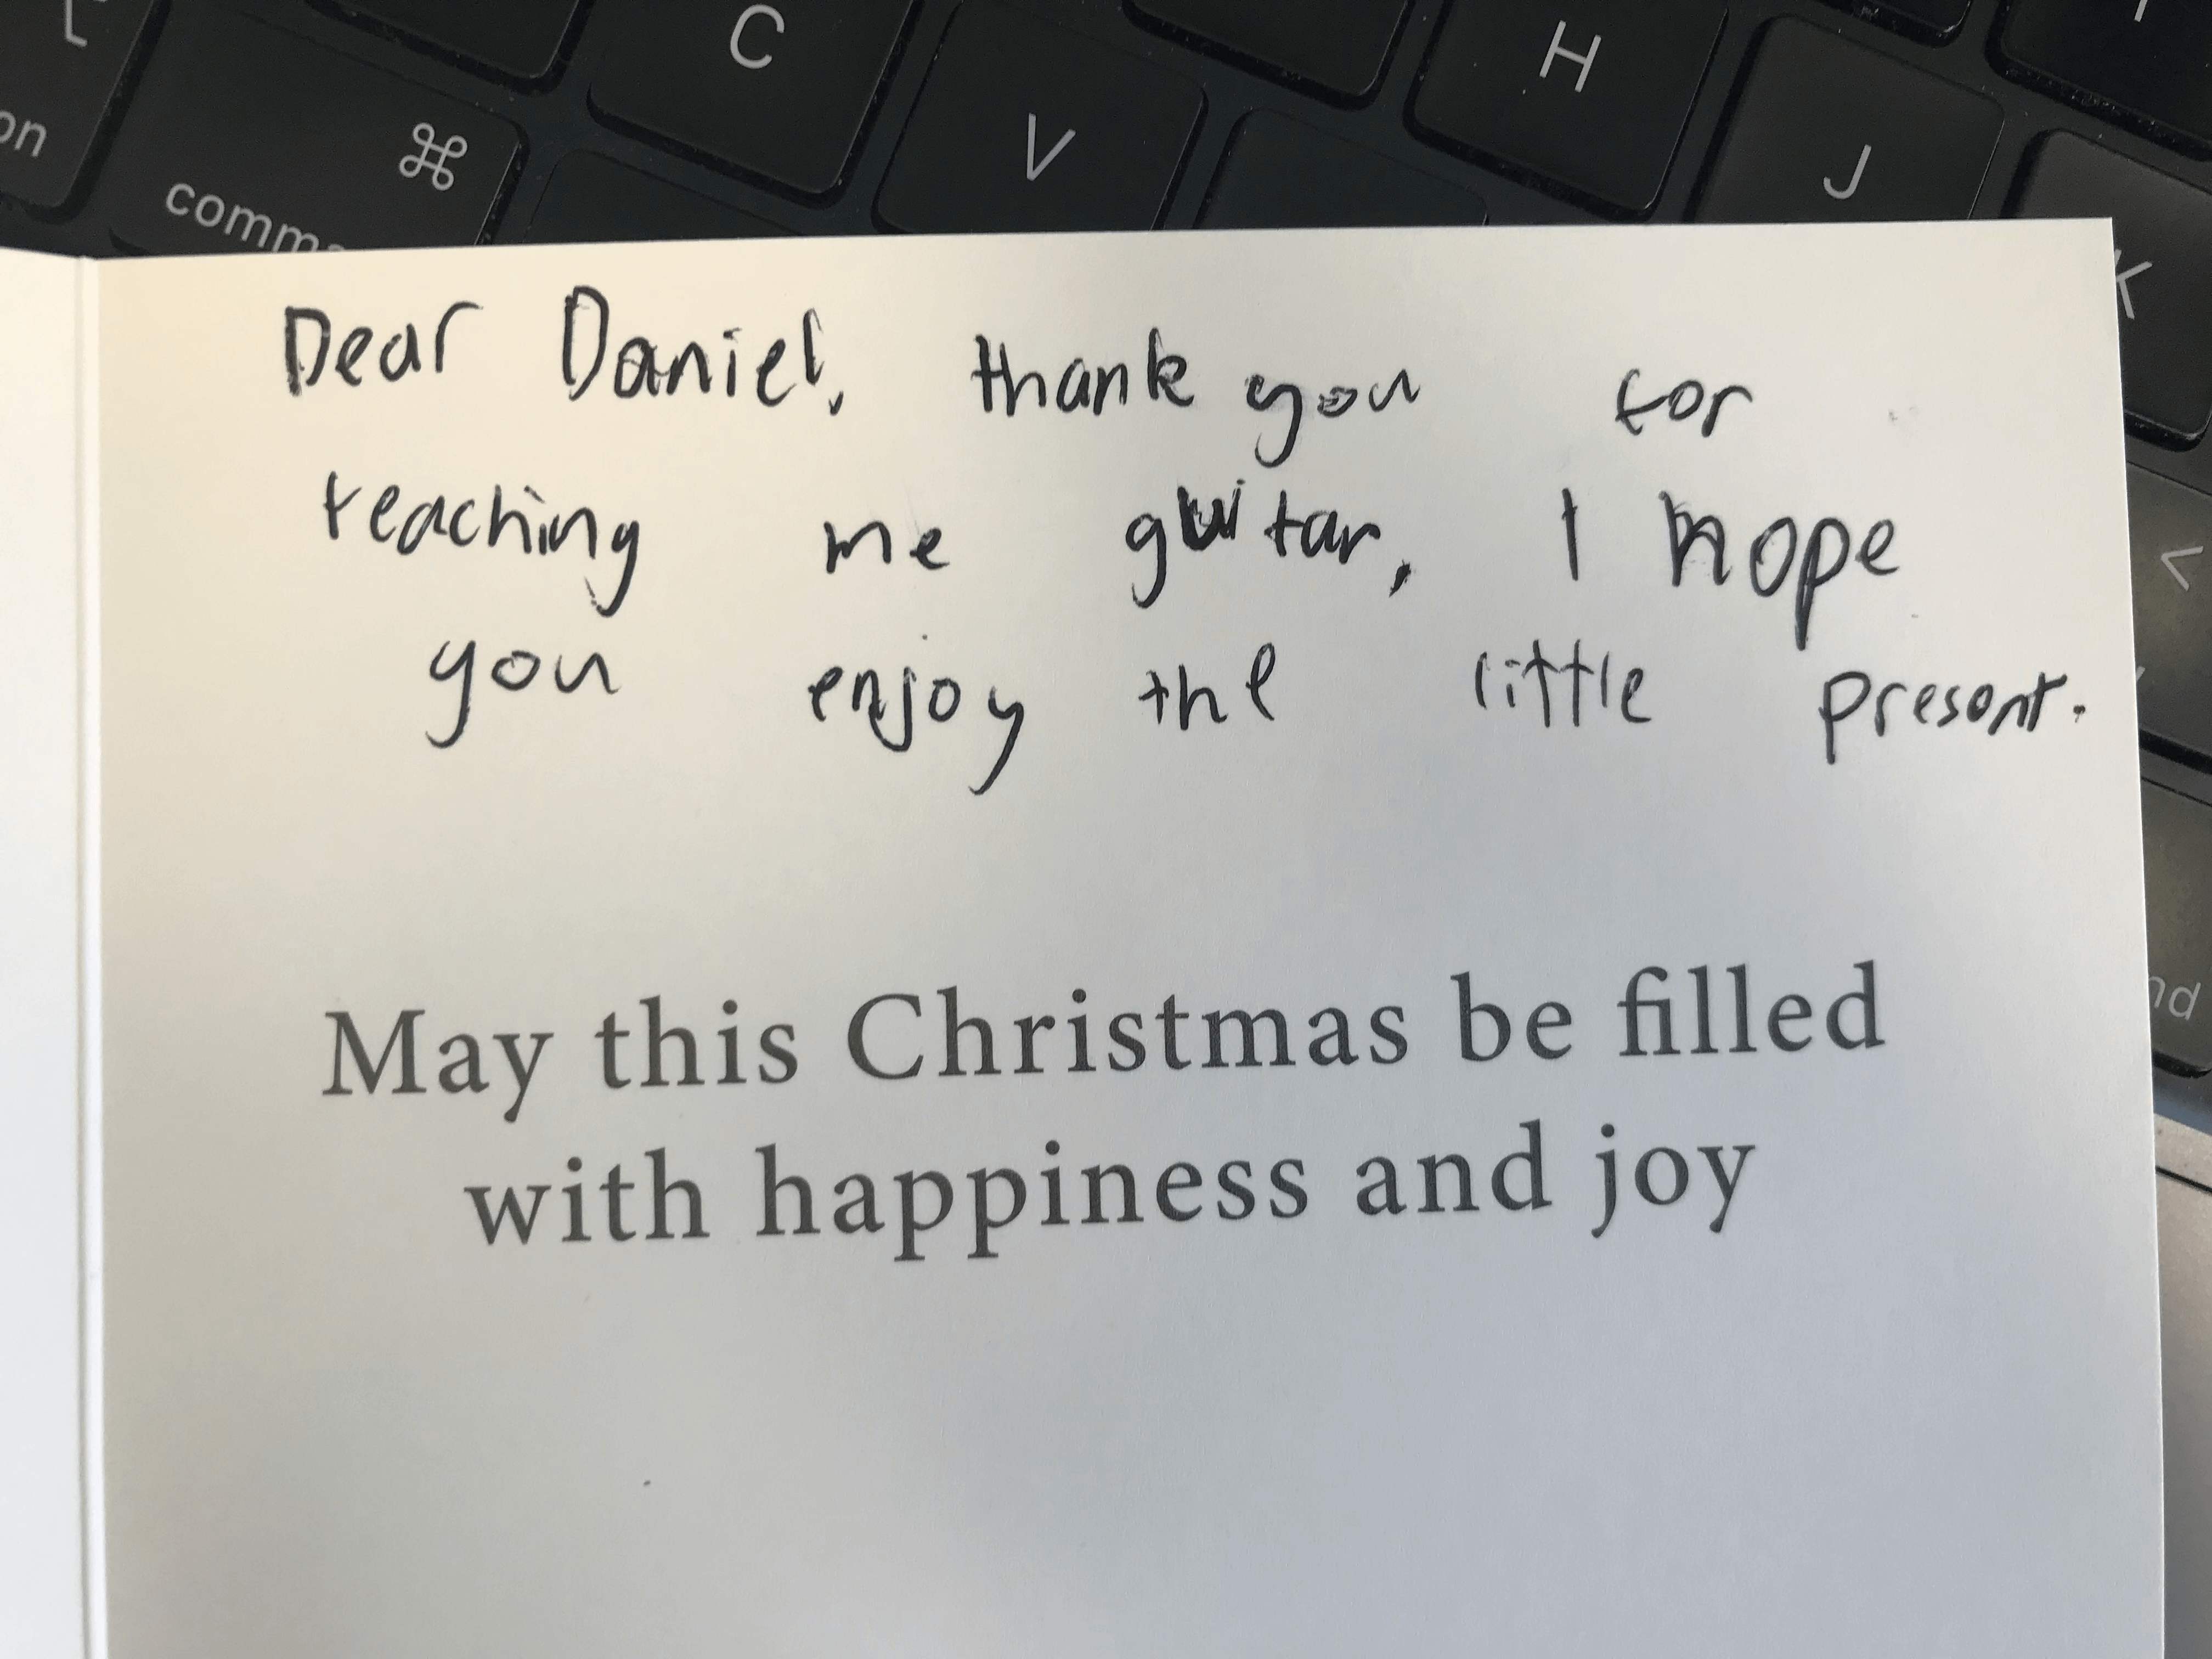 C
H
V
J
⌘
on
comm
K
Dear Daniel, thank you for
teaching me guitar, I hope
you enjoy the little present.
<
nd
May this Christmas be filled
with happiness and joy